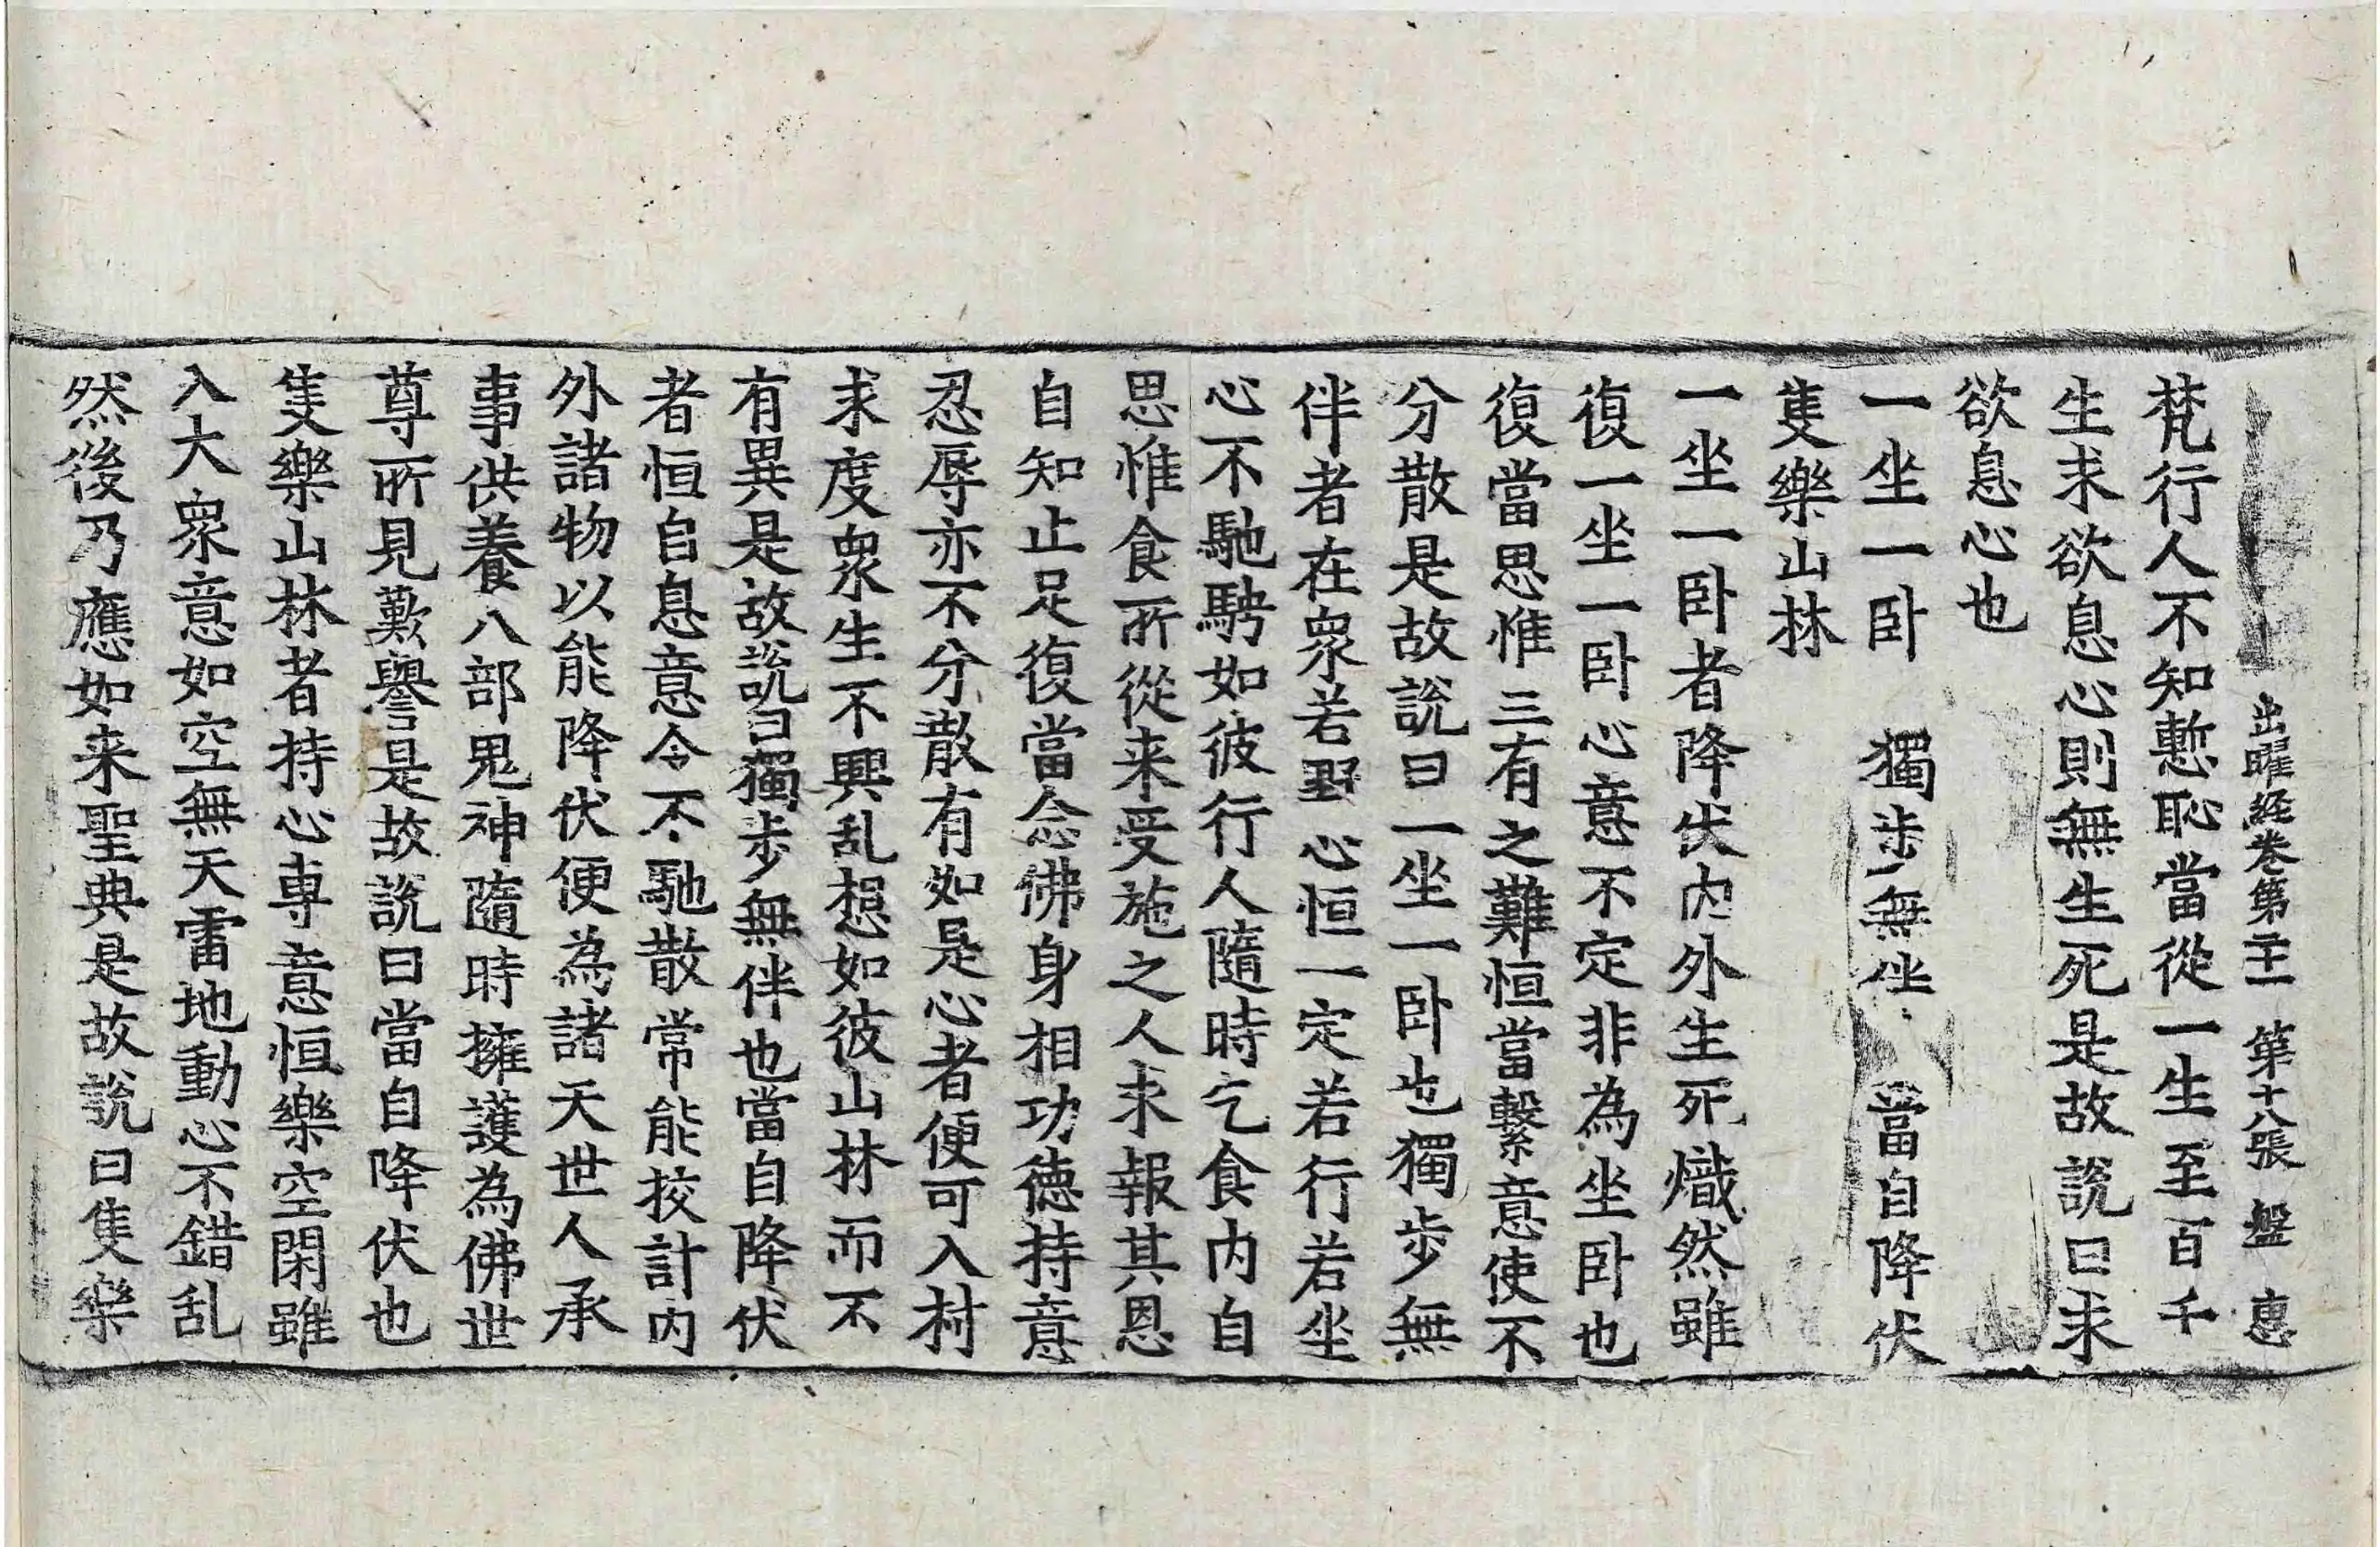 出曜經卷第二十一 第十八張 盤 惠
梵行人不知慙恥當從一生至百千
生求欲息心則無生死是故說曰求
欲息心也
一坐一卧 獨步無伴 當自降伏
隻樂山林
一坐一卧者降伏内外生死熾然雖
復一坐一卧心意不定非為坐卧也
復當思惟三有之難恒當繫意使不
分散是故說曰一坐一卧也獨步無
伴者在衆若野心恒一定若行若坐
心不馳騁如彼行人隨時乞食内自
思惟食所從来受施之人求報其恩
自知止足復當念佛身相功德持意
忍辱亦不分散有如是心者便可入村
求度衆生不興乱想如彼山林而不
有異是故說曰獨步無伴也當自降伏
者恒自息意令不馳散常能挍計内
外諸物以能降伏便為諸天世人承
事供養八部鬼神隨時擁護為佛世
尊所見歎譽是故說曰當自降伏也
隻樂山林者持心專意恒樂空閑雖
入大衆意如空無天雷地動心不錯乱
然後乃應如来聖典是故說曰隻樂